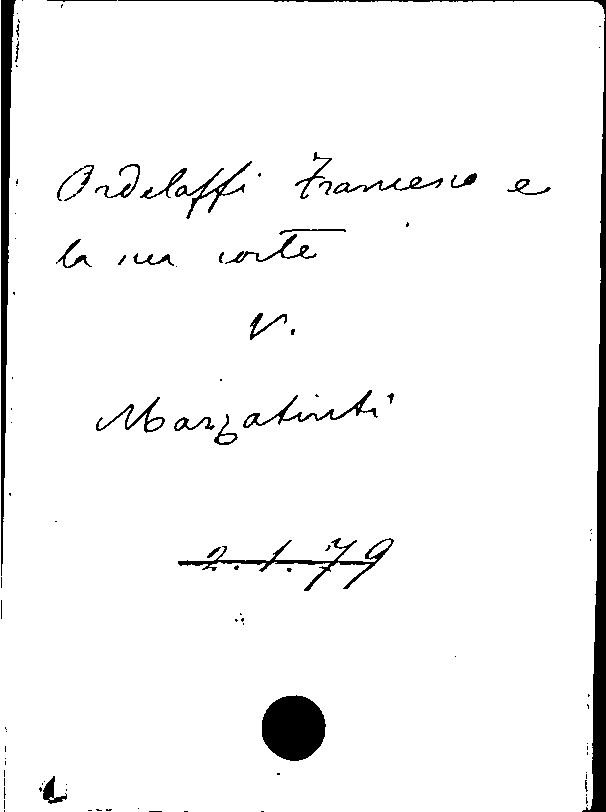 Ordelaffi Francesco e
la sua corte
V.
Mazzatinti
2.1.79